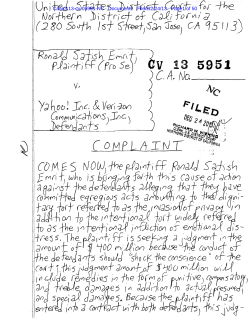 United States District Court for the
Northern District of California
(280 South 1st Street, San Jose, CA 95113)
Ronald Satish Emrit,
Plaintiff (Pro Se)
CV 13 5951
C.A. No.
v.
NC
Yahoo! Inc. & Verizon
Communications, Inc,
Defendants
FILED
DEC 24 2013
COMPLAINT
COMES NOW, the plaintiff Ronald Satish
Emrit, who is bringing forth this cause of action
against the defendants alleging that they have
committed egregious acts amounting to the digni-
tary tort referred to as the invasion of privacy in
addition to the intentional tort widely referred
to as the intentional infliction of emotional dis-
tress. The plaintiff is seeking a judgment in the
amount of $400 million because the conduct of
the defendants should "shock the conscience" of the
court; this judgment amount of $400 million will
include remedies in the form of punitive, compensatory,
and treble damages in addition to actual, presumed,
and special damages. Because the plaintiff has
entered into a contract with both defendants, this judg-